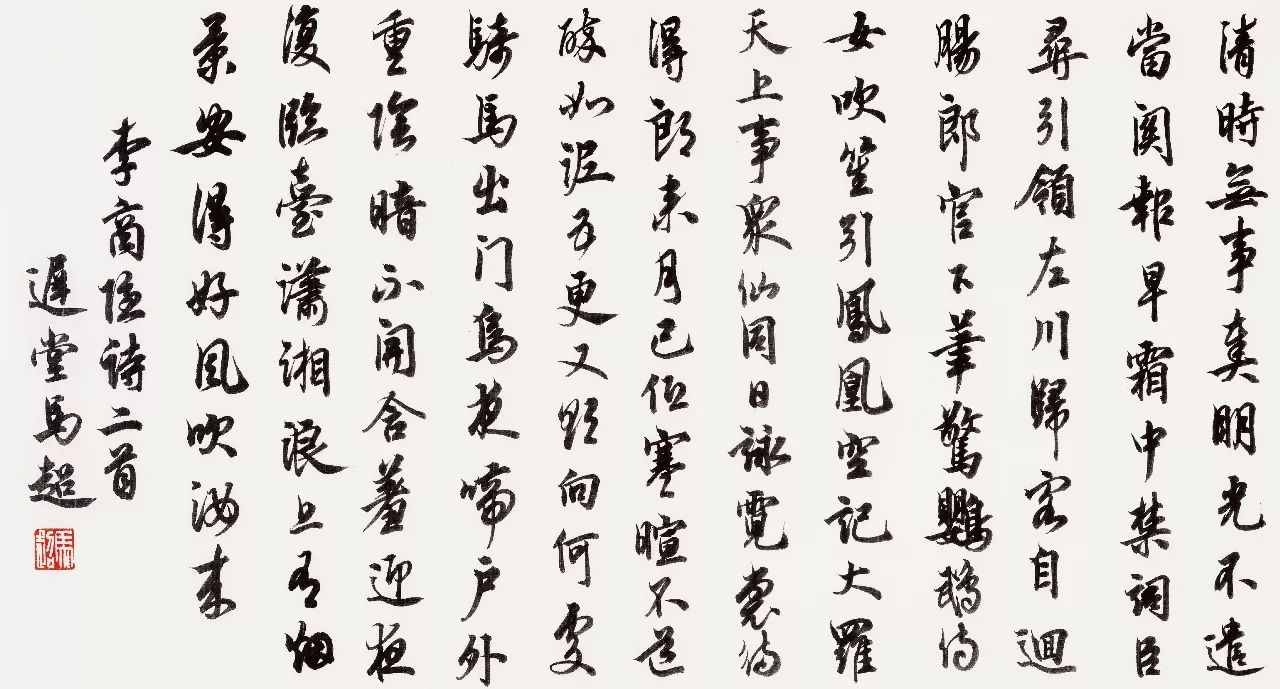 清時無事奏明光不遣
當關報早霜中禁詞臣
尋引領左川歸客自迴
腸郎官下筆驚鸚鵡侍
女吹笙引鳳凰空記大羅
天上事衆仙同日詠霓裳待
得郎来月已低寒暄不道
醉如泥五更又欲向何處
騎馬出门烏夜啼户外
重陰暗不開含羞迎夜
復臨臺瀟湘浪上有烟
景安得好風吹汝来
李商隱詩二首
遲堂馬超
馬超